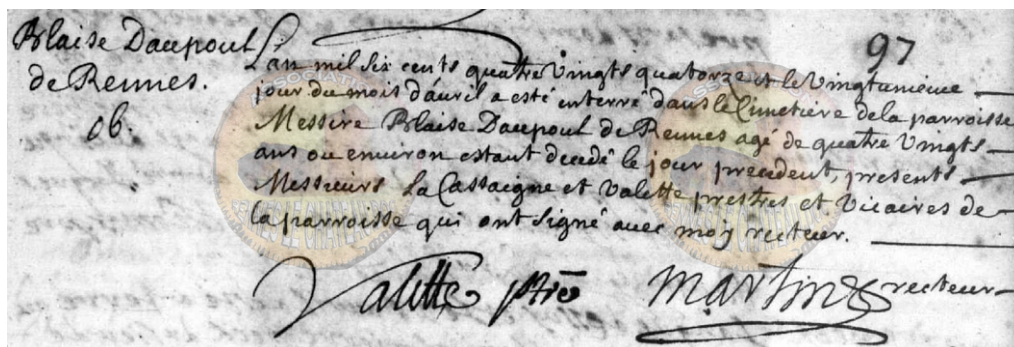 Blaise Daupoul
de Rennes.
ob.
97
L'an mil six cents quatre vingts quatorze et le vingtunieme
jour du mois d'auril a esté interré dans le Cimetiere de la parroisse
Messire Blaise Daupoul de Rennes agé de quatre vingts
ans ou environ estant decedé le jour precedent, presents
Messieurs La Cassaigne et Valette prestres et Vicaires de
la parroisse qui ont signé auec moy recteur.
Valette ptre Martin recteur
ASSOCIATI
RENNES LE CHATEAU